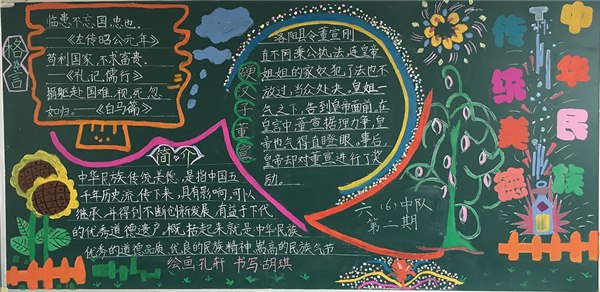 格言
临患不忘国,忠也。
——《左传昭公元年》
苟利国家,不求富贵.
——《礼记儒行》
捐躯赴国难,视死忽
如归。——《白马篇》
硬汉子董宣
洛阳县令董宣刚
直不阿秉公执法,连皇帝
姐姐的家奴犯了法也不
放过,当众处决.皇姐一
气之下,告到皇帝面前,在
皇宫中董宣据理力争,皇
帝也气得直瞪眼。事后,
皇帝却对董宣进行了奖
励。
中华民族
传统美德
简介
中华民族传统美德,是指中国五
千年历史流传下来,具有影响,可以
继承,并得到不断创新发展,有益于下代
的优秀道德遗产.概括起来就是中华民族
优秀的道德品质.优良的民族精神.崇高的民族气节
绘画:孔轩 书写:胡琪
六(6)中队
第二期